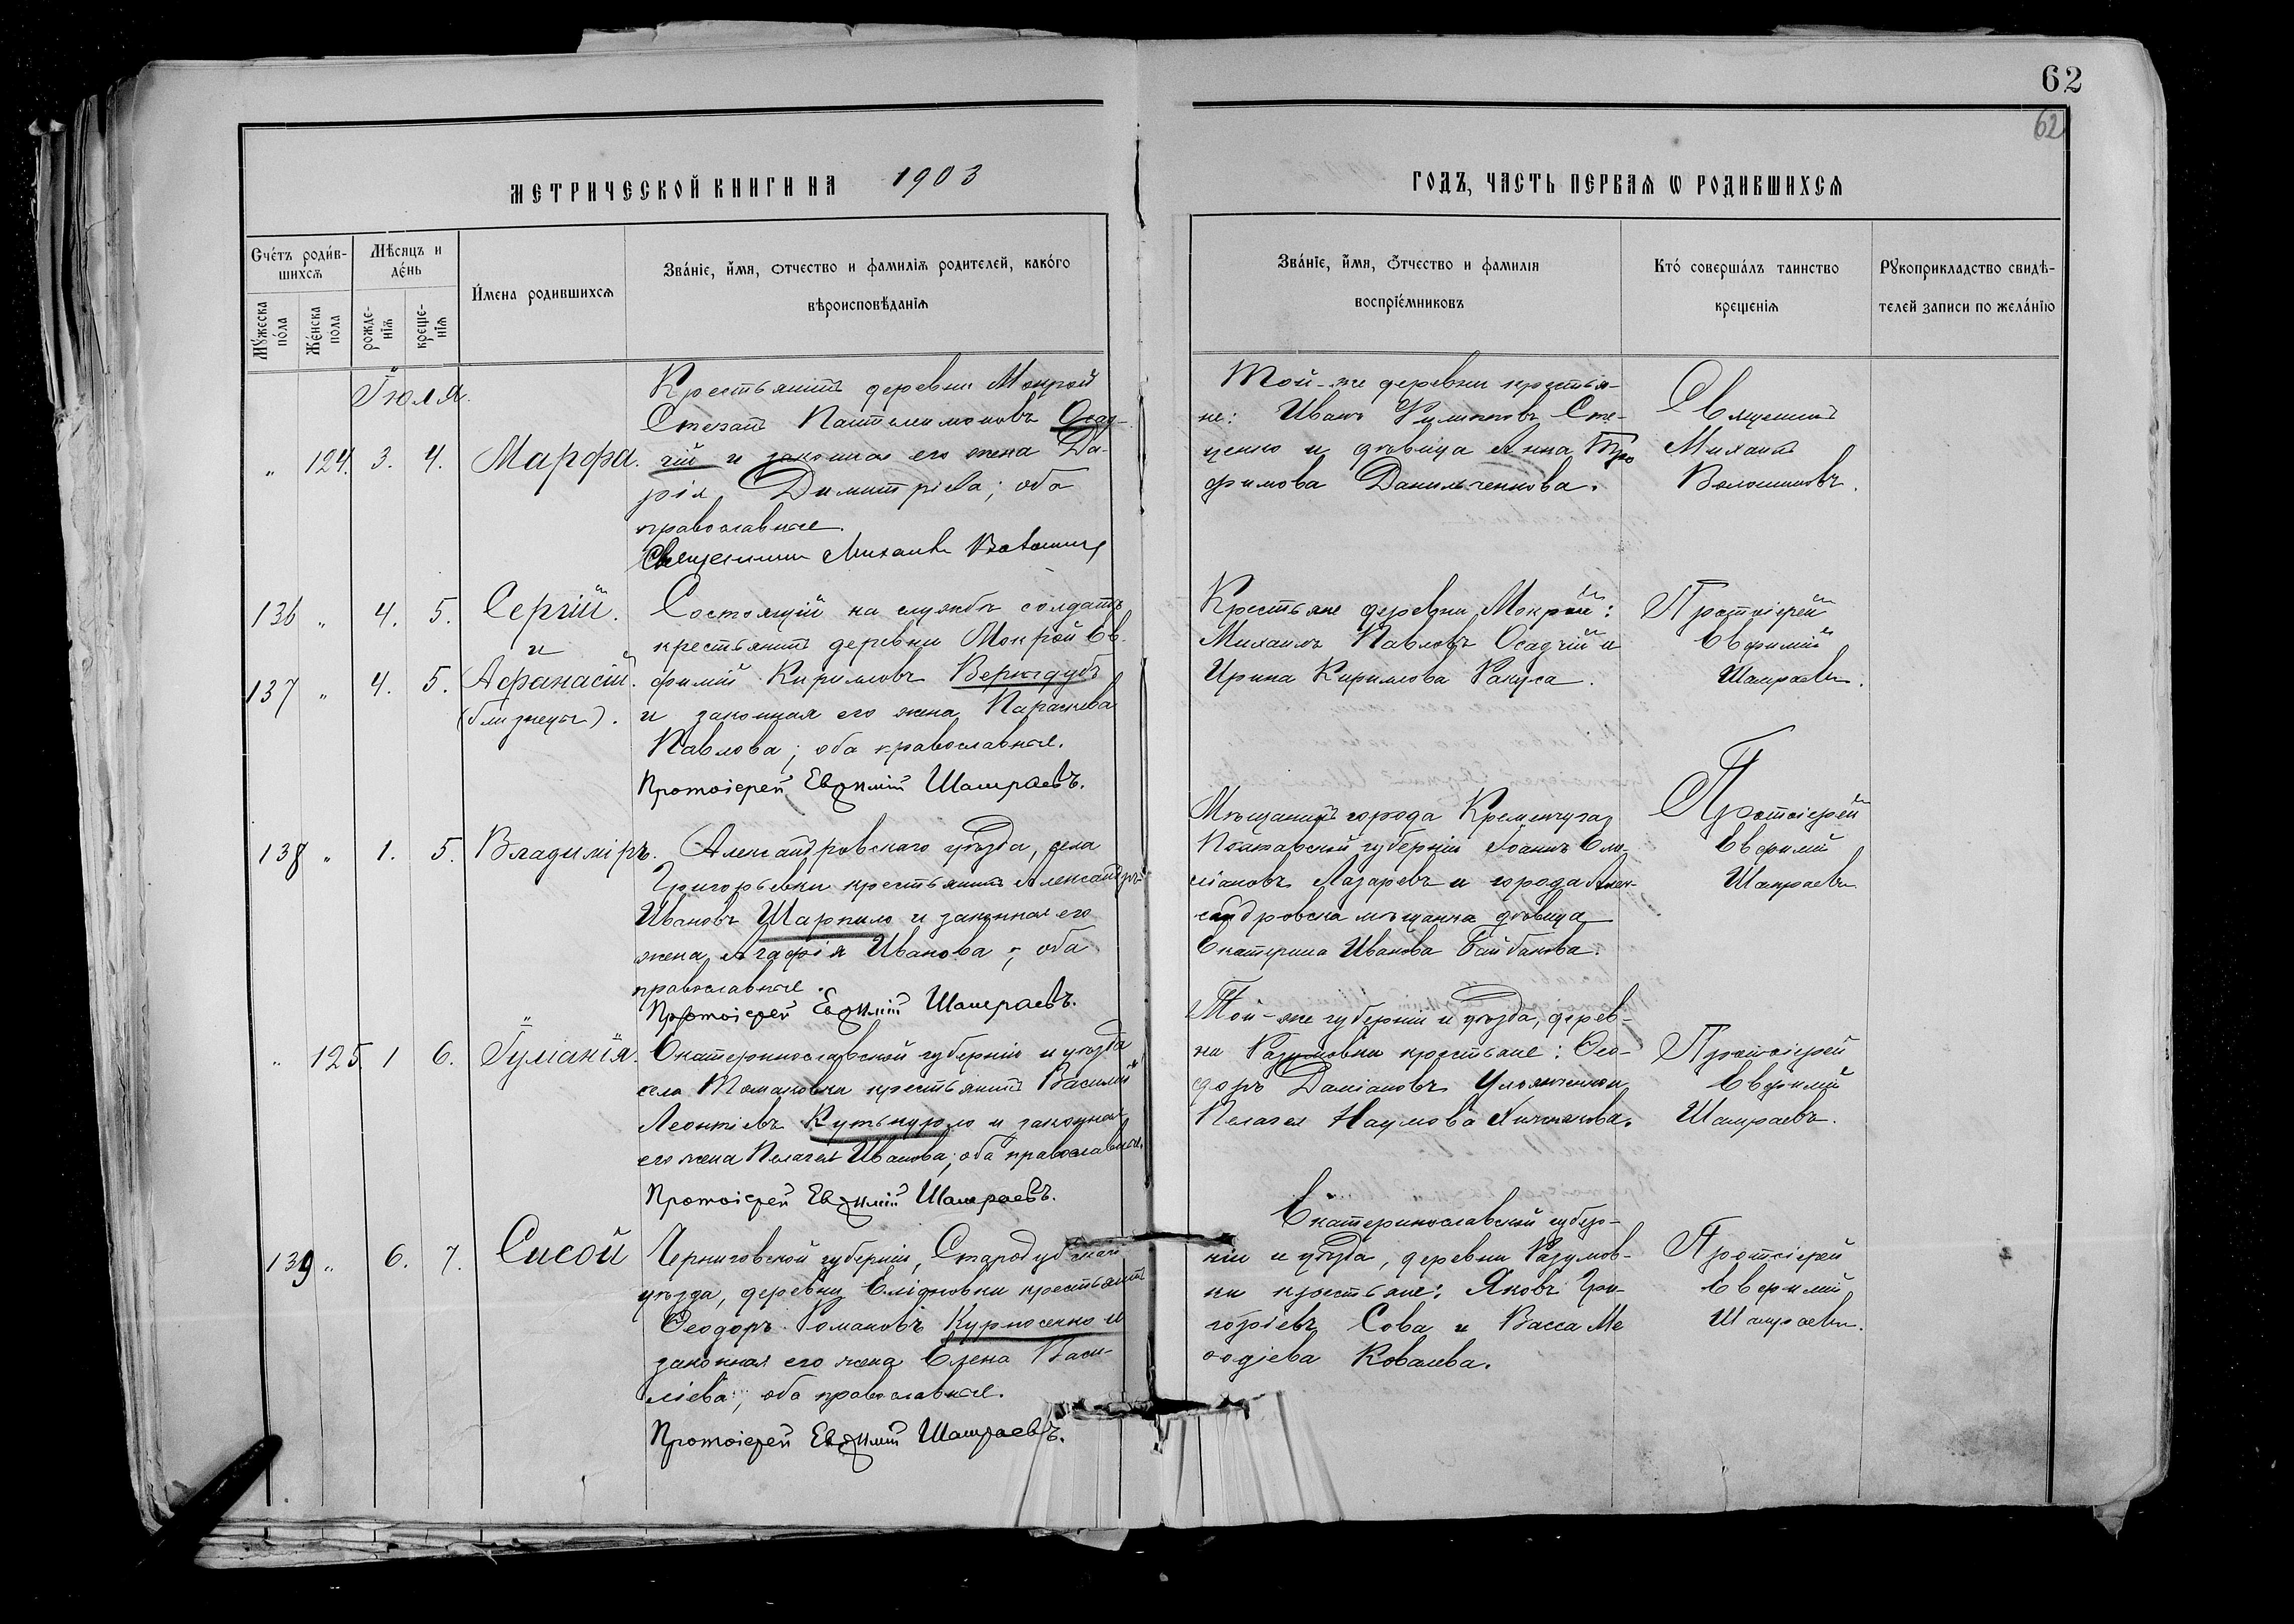 62
62
МЕТРИЧЕСКОЙ КНИГИ НА 1903
ГОДЪ, ЧАСТЬ ПЕРВАѦ Ѡ РОДИВШИХСѦ
Счéтъ роди́в-
шихсѧ
Мꙋ́жеска
по́ла
Же́нска
по́ла
Мѣ́сяцъ и
де́нь
рожде-
нїѧ
креще-
нїѧ
И́мена родившихсѧ
Зва́нїе, и́мя, ѻтчество и фамилїѧ родителей, како́го
вѣроисповѣ́данїѧ
Зва́нїе, и́мя, ѻтчество и фамилїѧ
воспрїе́мниковъ
Кто́ соверша́лъ таинство
крещенїѧ
Рꙋкоприкладство свидѣ́-
телей записи по жела́нїю
Іюля.
" 124. 3. 4. Марфа.
Крестьянинъ деревни Мокрой
Стефанъ Пантелимоновъ Осад-
чій и законная его жена Да-
рія Димитріева; оба
православные.
Священникъ Михаилъ
Той-же деревни крестья-
не: Иванъ Сте-
ценко и дѣвица Анна Тро
фимова Данильченкова.
Священникъ
Михаилъ
Волошиновъ.
136 " 4. 5. Сергій.
и
137 " 4. 5. Афанасій.
(близнецы).
Состоящій на службѣ солдатъ
крестьянинъ деревни Мокрой Ев-
фимій Кирилловъ Вернидубъ
и законная его жена Параскева
Павлова; оба православные.
Протоіерей Евфимій Шамраевъ.
Крестьяне деревни Мокрой:
Михаилъ Павловъ Осадчій и
Ирина Кириллова Ракуса.
Протоіерей
Евфимій
Шамраевъ.
138 " 1. 5. Владиміръ.
Александровскаго уѣзда, села
Григорьевки крестьянинъ Александръ
Ивановъ Шарпило и законная его
жена Агафія Иванова; оба
православные.
Протоіерей Евфимій Шамраевъ.
Мѣщанинъ города Кременчуга
Полтавской губерніи Іоаннъ
Лазаревъ и города Алек-
сандровска мѣщанка дѣвица
Екатерина Иванова Байбакова.
Протоіерей
Евфимій
Шамраевъ
" 125 1 6. Іуліанія.
Екатеринославской губерніи и уѣзда
села Томаковки крестьянинъ Василій
Леонтіевъ и законная
его жена Пелагея Иванова; оба православные.
Протоіерей Евфимій Шамраевъ.
Той-же губерніи и уѣзда, дерев-
ни Разумовки крестьяне: Ѳео-
доръ Даміановъ
Пелагея Наумова
Протоіерей
Евфимій
Шамраевъ.
139 " 6. 7. Сисой
Черниговской губерніи, Стародубскаго
уѣзда, деревни крестьянинъ
Ѳеодоръ Романовъ Курносенко и
законная его жена Елена Васи-
ліева; оба православные.
Протоіерей Евфимій Шамраевъ.
Екатеринославской губер-
ніи и уѣзда, деревни Разумов-
ки крестьяне: Яковъ Гри-
горіевъ Сова и Васса Ме
ѳодіева Ковалева.
Протоіерей
Евфимій
Шамраевъ.